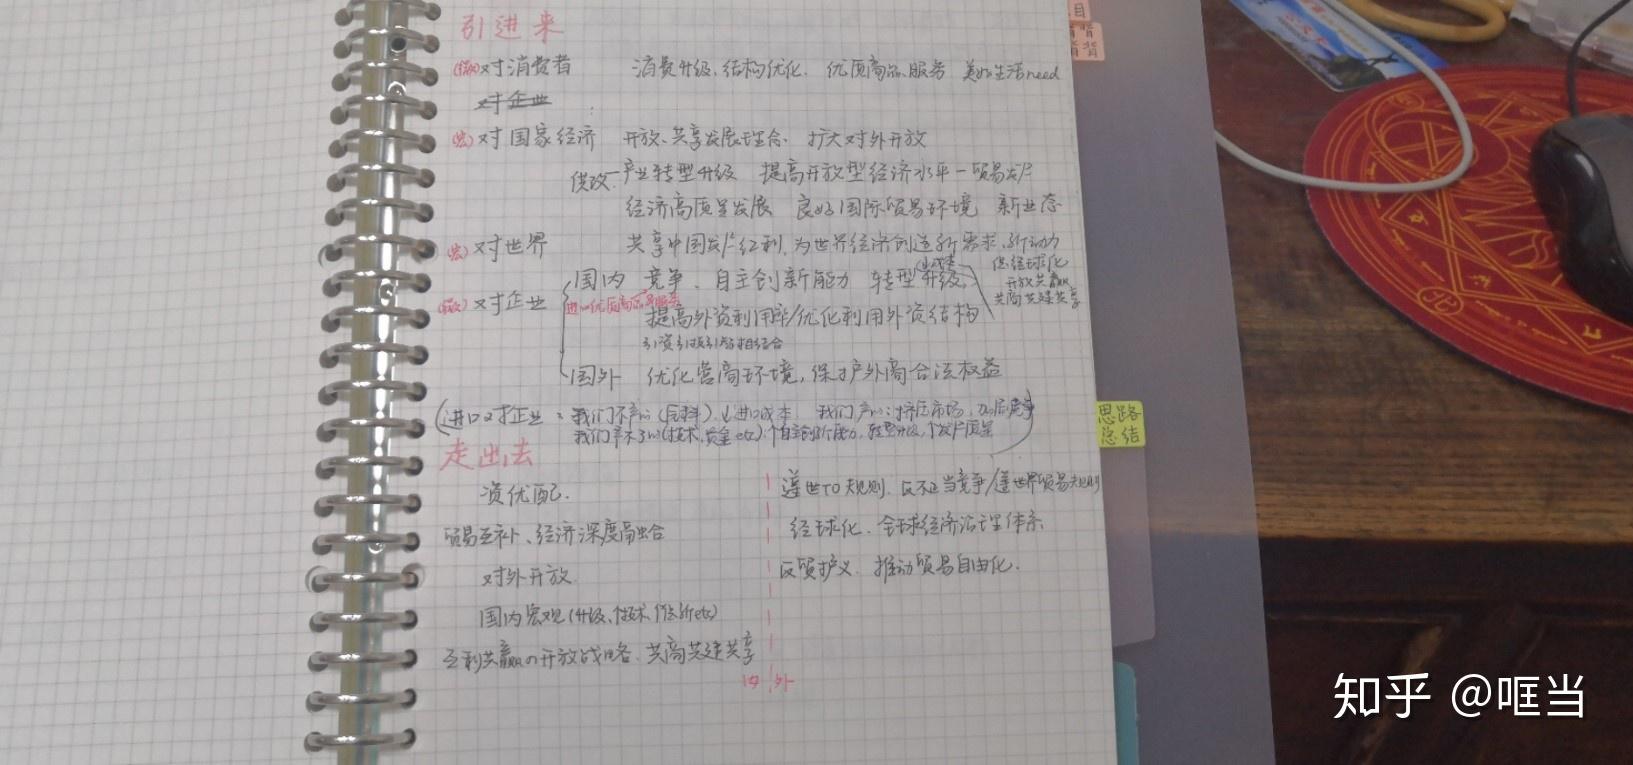 引进来
(微)对消费者 消费升级、结构优化. 优质商品、服务 美好生活need
对企业
(宏)对国家经济 开放、共享发展理念. 扩大对外开放
供改 - 产业转型升级 提高开放型经济水平-贸易
经济高质量发展 良好国际贸易环境 新业态
(宏)对世界 共享中国发展红利,为世界经济创造新需求、新动力
促经球化
开放共赢
共商共建共享
(微)对企业
国内 竞争、自主创新能力 转型升级
进口优质商品
提高外资利用率/优化利用外资结构
引资引技引智相结合
国外 优化营商环境,保护外商合法权益
(进口对企业: 我们不产(原料)↓进口成本. 我们产:挤压市场,加剧竞争
我们产不了(技术,质量etc):↑自主创新能力,转型升级,↑发展质量)
走出去
资优配.
贸易互补、经济深度融合
对外开放.
国内宏观(升级、技术、etc)
互利共赢の开放战略、共商共建共享
遵世TO规则. 反不正当竞争/遵世界贸易规则
经球化. 全球经济治理体系
反贸护义. 推动贸易自由化.
内 外
目
背
背
思路
总结
知乎 @哐当